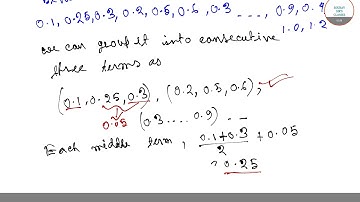 0.1, 0.25, 0.3, 0.2, 0.5, 0.6, 0.3 ..., 0.9, 0.9
1.0, 1.2
we can group it into consecutive
three terms as
(0.1, 0.25, 0.3), (0.2, 0.5, 0.6),
0.05
(0.3 .... 0.9) ...
Each middle term, (0.1+0.3)/2 + 0.05
= 0.25